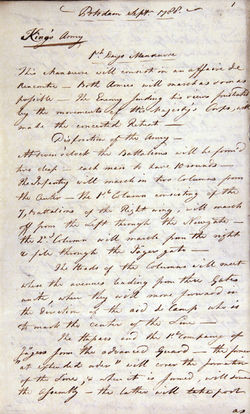 1
Potsdam Sept. 1788.
King's Army
1st Days Manœuvre
This Manœuvre will consist in an affaire de
Rencontre — Both Armies will march as soon as
possible — The Enemy finding his views frustrated
by the movements of his Majesty's Corps, will
make the concerted Retreat
Disposition of the Army —
At seven o'clock the Battalions will be formed
two deep — each man to have 10 rounds —
The Infantry will march in two Columns from
the Center — the 1st Column consisting of the
7 Battalions of the Right wing, will march
off from the left through the Newgate —
The 2d Column will march from the right
& file through the Jager gate —
The Heads of the Columns will meet
where the avenues leading from these Gates
unite, when they will move forward in
the direction of the aid de Camp who is
to mark the center of the Line —
The Huzars and the 1st Company of
Jagers form the advanced Guard — the former
will cover the formation
of the Line, & when it is formed, will
the assembly — the latter will take post